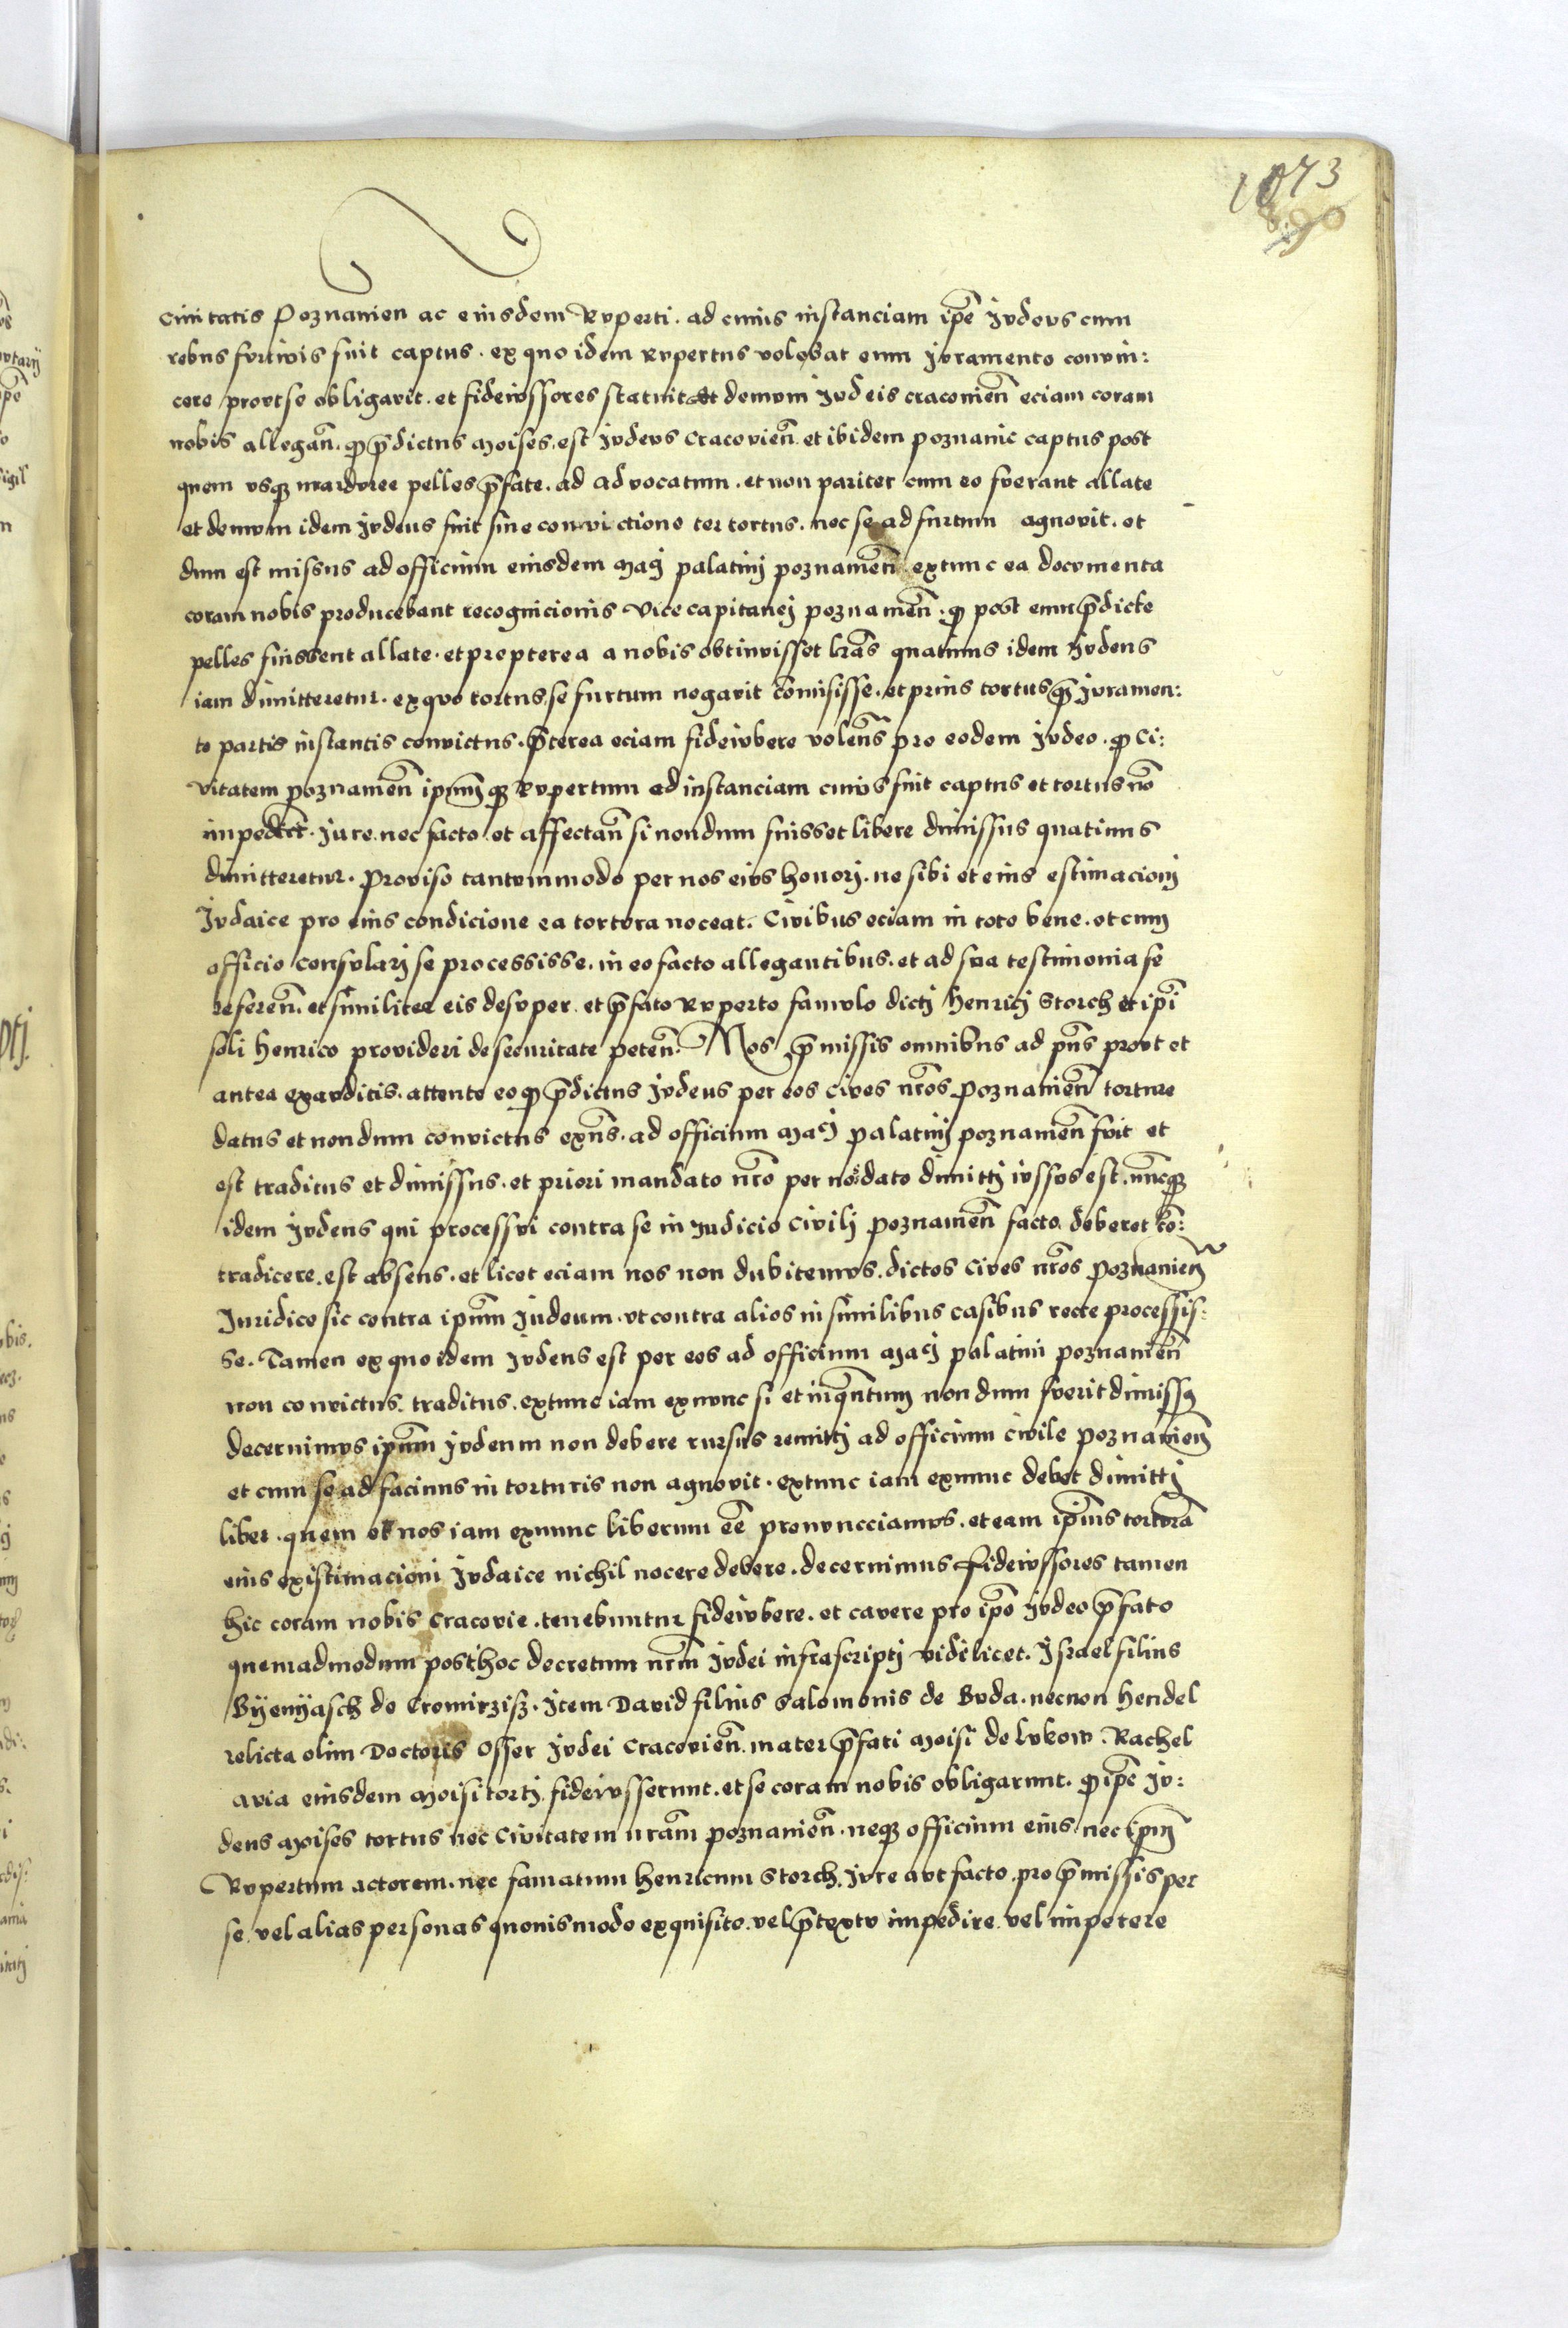 1073
890
Civitatis Poznanien ac eiusdem Ruperti . ad cuius instanciam ip̄e Judeus cum
rebus furtivis fuit captus . ex quo idem Rupertus volebat eum Juramento convin:
cere prout se obligavit . et fideiussores statuit et demum Judeis cracovien̄ eciam coram
nobis allegan̄ . ꝙ p̄dictus Moises . est Judeus Cracovien̄ . et ibidem poznanie captus post
quem usqꝫ marduree pelles p̄fate . ad advocatum . et non pariter cum eo fuerant allate
et demum idem Judeus fuit sine convictione ter tortus . nec se ad furtum agnovit . et
dum est missus ad officium eiusdem Magᶜⁱ palatini poznanien̄ extunc ea documenta
coram nobis producebant recognicionis Vicecapitanei poznanien̄ . ꝙ post eum p̄dicte
pelles fuissent allate . et propterea a nobis obtinuisset l̄ras quatinus idem Judeus
iam dimitteretur . ex quo tortus se furtum negavit com̄isisse . et prius tortus q̄ Juramen:
to partis instantis convictus . p̄terea eciam fideiubere volen̄s pro eodem Judeo . ꝙ Ci:
vitatem poznanien̄ ip̄umqꝫ Rupertum ad instanciam cuius fuit captus et tortus nō
impedi[et] . Jure . nec facto . et affectan̄ si nondum fuisset libere dimissus quatinus
dimitteretur . Proviso tantummodo per nos eius honori . ne sibi et eius estimacioni
Judaice pro eius condicione ea tortura noceat . Civibus eciam in toto bene . et cum
officio Consulari se processisse . in eo facto allegantibus . et ad sua testimonia se
referen̄ . et similiter eis desuper . et p̄fato Ruperto famulo dicti Henrici Storch et ip̄i
soli Henrico provideri de securitate peten̄ . Nos p̄missis omnibus ad p̄ns prout et
antea exauditis . attento eo ꝙ p̄dictus Judeus per eos Cives nr̄os Poznanien̄ torture
datus et nondum convictus exn̄s . ad officium Magᶜⁱ palatini poznanien̄ fuit et
est traditus et dimissus . et priori mandato nr̄o per nos dato dimitti iussus est . nuncqꝫ
idem Judeus qui processui contra se in Judicio Civili poznanien̄ facto deberet cō:
tradicere . est absens . et licet eciam nos non dubitemus . dictos Cives nr̄os poznanien̄
Juridice sic contra ip̄um Judeum . ut contra alios in similibus casibus recte processis:
se . Tamen ex quo idem Judeus est per eos ad officium Magᶜⁱ palatini poznanien̄
non convictus . traditus . extunc iam exnunc si et inq̄ntum nondum fuerit dimissꝰ
decernimus ip̄um Judeum non debere rursus remitti ad officium civile poznanien̄
et cum se ad facinus in torturis non agnovit . extunc iam exnunc debet dimitti
liber . quem et nos iam exnunc liberum eē pronuncciamus . et eam ip̄ius torturā
eius existimacioni Judaice nichil nocere debere . decernimus fideiussores tamen
hic coram nobis Cracovie . tenebuntur fideiubere . et cavere pro ip̄o Judeo p̄fato
quemadmodum post hoc decretum nr̄m Judei infrascripti videlicet . Israel filius
Byenyasch de Cromirzisz . Item David filius Salomonis de Buda . necnon Hendel
relicta olim Doctoris Osser Judei Cracovien̄ . mater p̄fati Moisi de Lukow . Rachel
avia eiusdem Moisi torti . fideiusserunt . et se coram nobis obligarunt . ꝙ ip̄e Ju:
deus Moises tortus nec Civitatem nr̄am poznanien̄ . neqꝫ officium eius . nec ip̄um
Rupertum actorem . nec famatum Henricum Storch . Jure aut facto . pro p̄missis per
se . vel alias personas quovismodo exquisito . vel p̄textu impedire . vel impetere